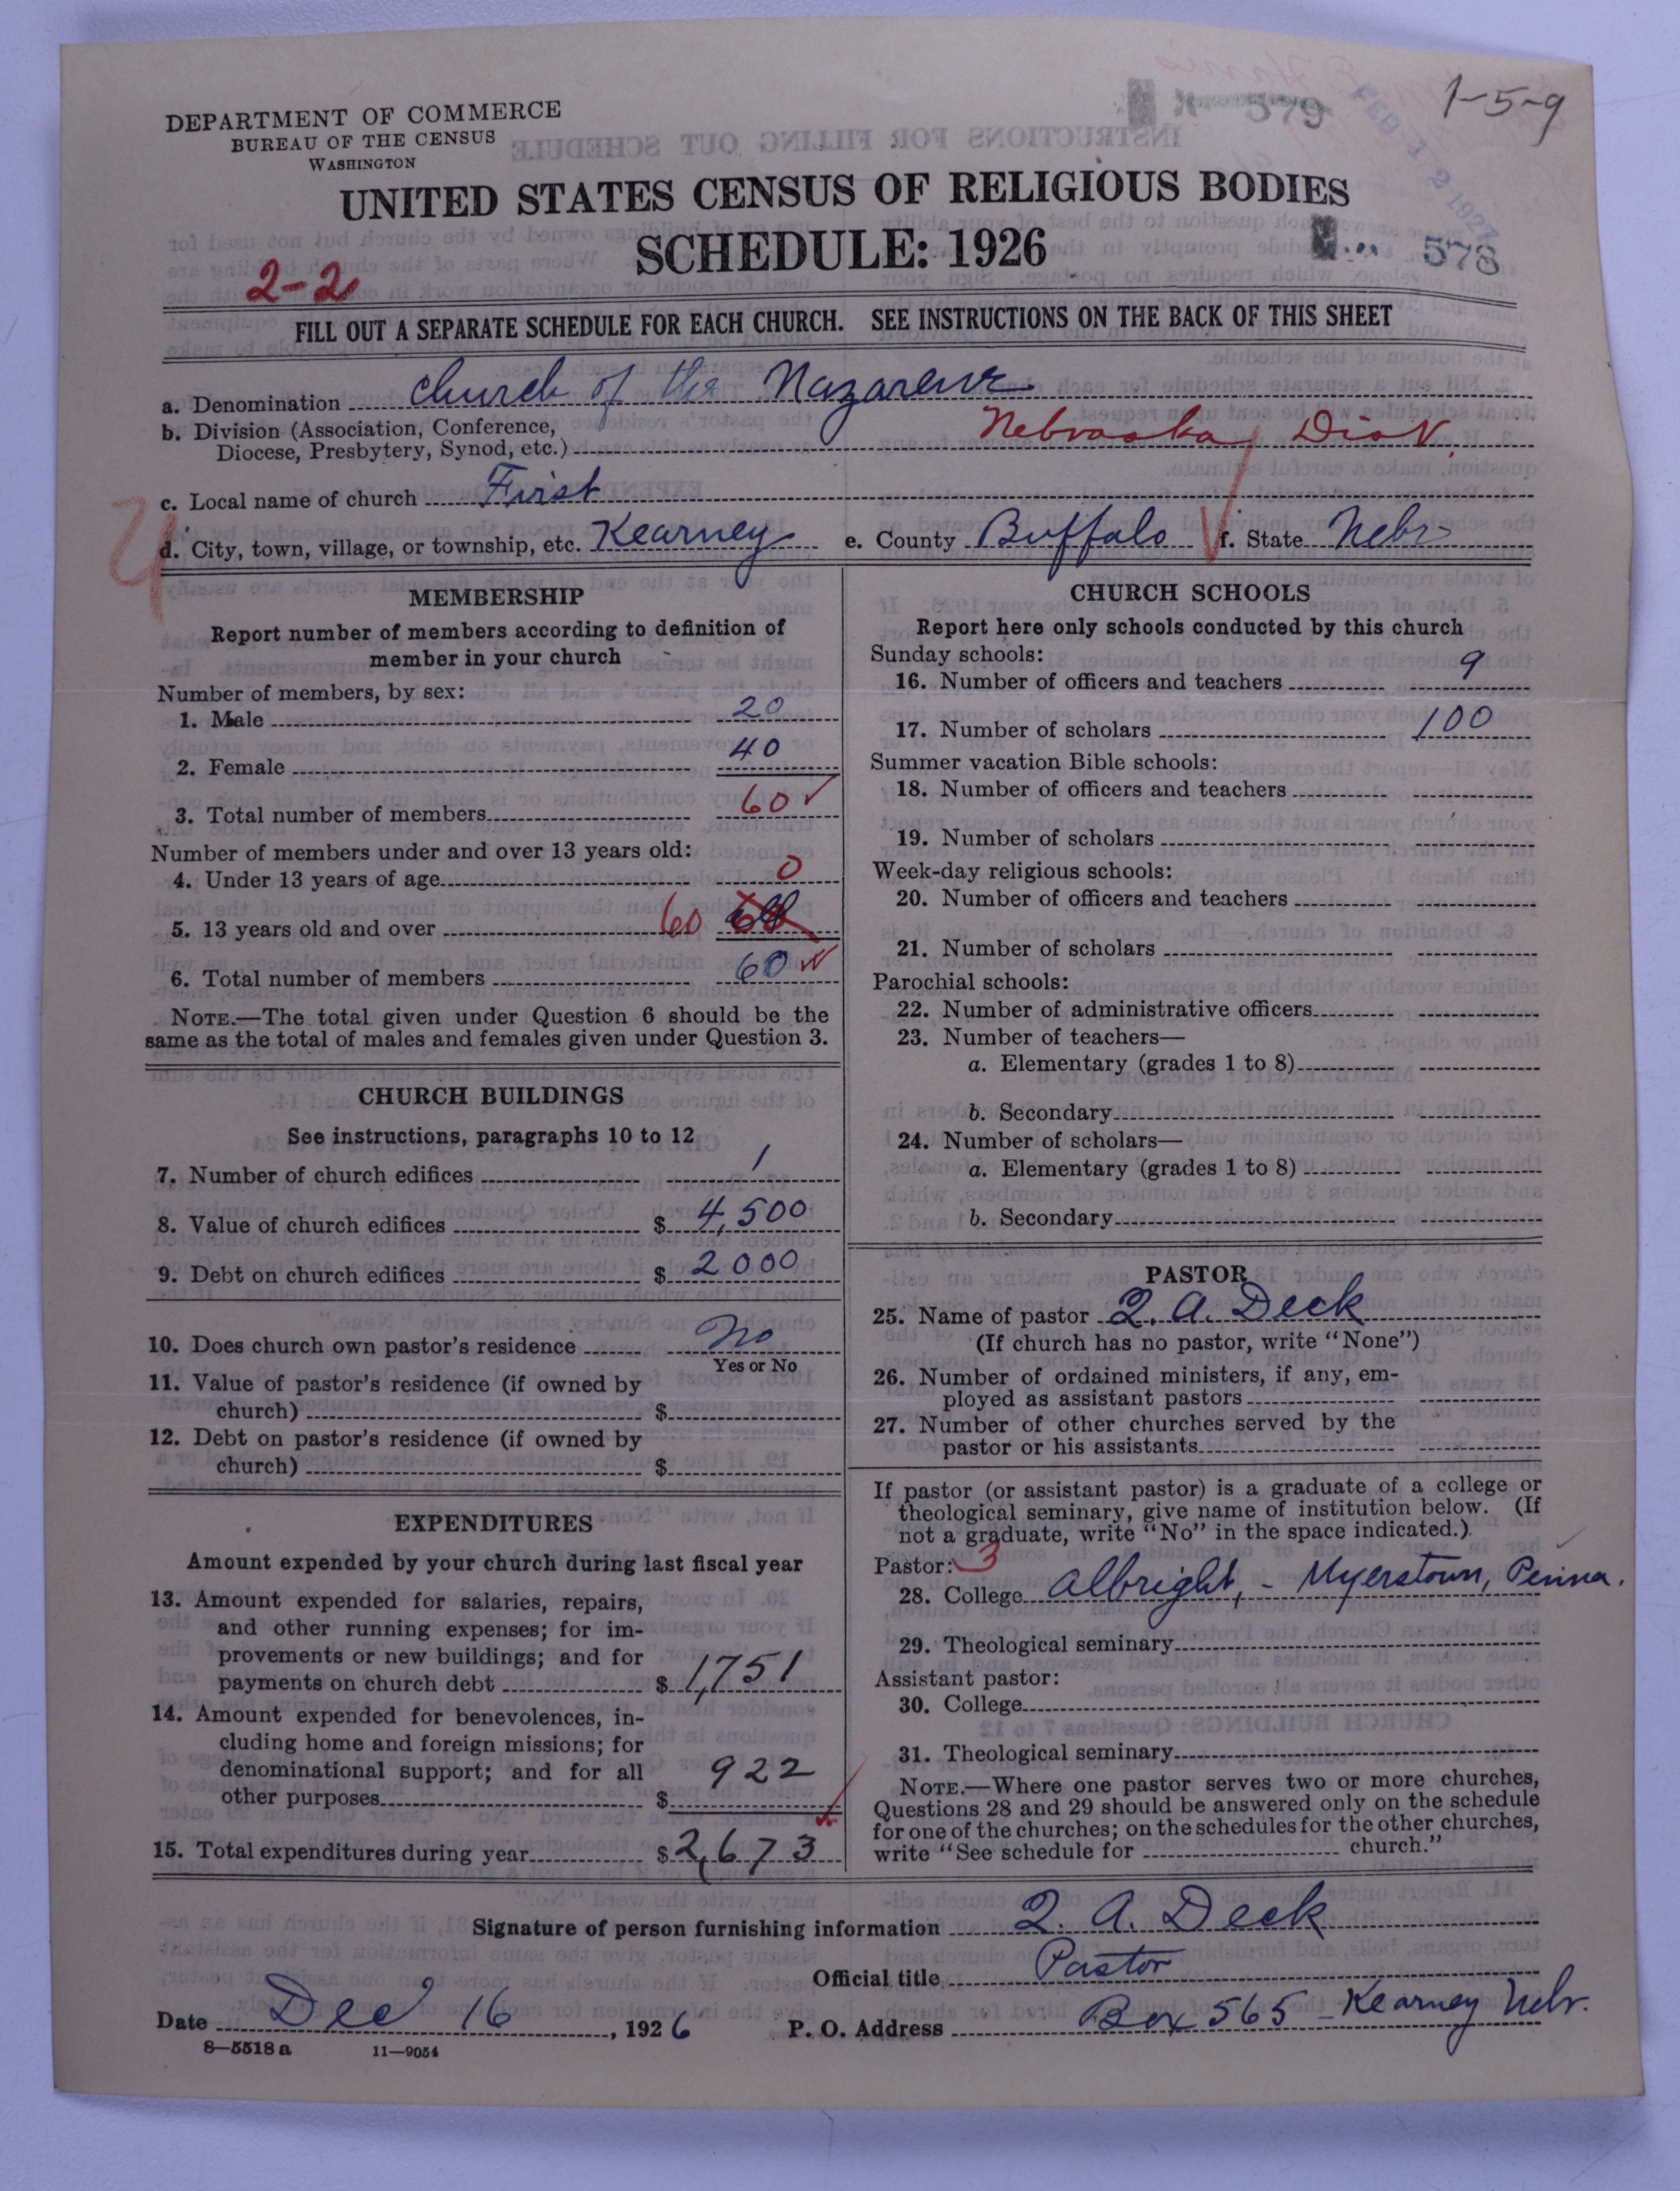 1-5-9
579
DEPARTMENT OF COMMERCE
BUREAU OF THE CENSUS
WASHINGTON
UNITED STATES CENSUS OF RELIGIOUS BODIES
SCHEDULE: 1926
578
2-2
FILL OUT A SEPARATE SCHEDULE FOR EACH CHURCH. SEE INSTRUCTIONS ON THE BACK OF THIS SHEET
a. Denomination Church of the Nazarene
b. Division (Association, Conference,
Diocese, Presbytery, Synod, etc.) Nebraska Dist.
c. Local name of church First
d. City, town, village, or township, etc. Kearney e. County Buffalo f. State Nebr
MEMBERSHIP
Report number of members according to definition of
member in your church
Number of members, by sex:
1. Male 20
2. Female 40
3. Total number of members 60
Number of members under and over 13 years old:
4. Under 13 years of age 0
5. 13 years old and over 60
6. Total number of members 60
NOTE.—The total given under Question 6 should be the
same as the total of males and females given under Question 3.
CHURCH BUILDINGS
See instructions, paragraphs 10 to 12
7. Number of church edifices 1
8. Value of church edifices $ 4,500
9. Debt on church edifices $ 2000
10. Does church own pastor's residence No
Yes or No
11. Value of pastor's residence (if owned by
church) $
12. Debt on pastor's residence (if owned by
church) $
EXPENDITURES
Amount expended by your church during last fiscal year
13. Amount expended for salaries, repairs,
and other running expenses; for im-
provements or new buildings; and for
payments on church debt $ 1,751
14. Amount expended for benevolences, in-
cluding home and foreign missions; for
denominational support; and for all
other purposes $ 922
15. Total expenditures during year $ 2,673
CHURCH SCHOOLS
Report here only schools conducted by this church
Sunday schools:
16. Number of officers and teachers 9
17. Number of scholars 100
Summer vacation Bible schools:
18. Number of officers and teachers
19. Number of scholars
Week-day religious schools:
20. Number of officers and teachers
21. Number of scholars
Parochial schools:
22. Number of administrative officers
23. Number of teachers—
a. Elementary (grades 1 to 8)
b. Secondary
24. Number of scholars—
a. Elementary (grades 1 to 8)
b. Secondary
PASTOR
25. Name of pastor Q. A. Deck
(If church has no pastor, write "None")
26. Number of ordained ministers, if any, em-
ployed as assistant pastors
27. Number of other churches served by the
pastor or his assistants
If pastor (or assistant pastor) is a graduate of a college or
theological seminary, give name of institution below. (If
not a graduate, write "No" in the space indicated.)
Pastor: 3
28. College Albright, - Myerstown, Penna.
29. Theological seminary
Assistant pastor:
30. College
31. Theological seminary
NOTE.—Where one pastor serves two or more churches,
Questions 28 and 29 should be answered only on the schedule
for one of the churches; on the schedules for the other churches,
write "See schedule for church."
Signature of person furnishing information Q. A. Deck
Official title Pastor
Date Dec 16, 1926 P. O. Address Box 565 - Kearney Nebr.
8—5518a 11—9054